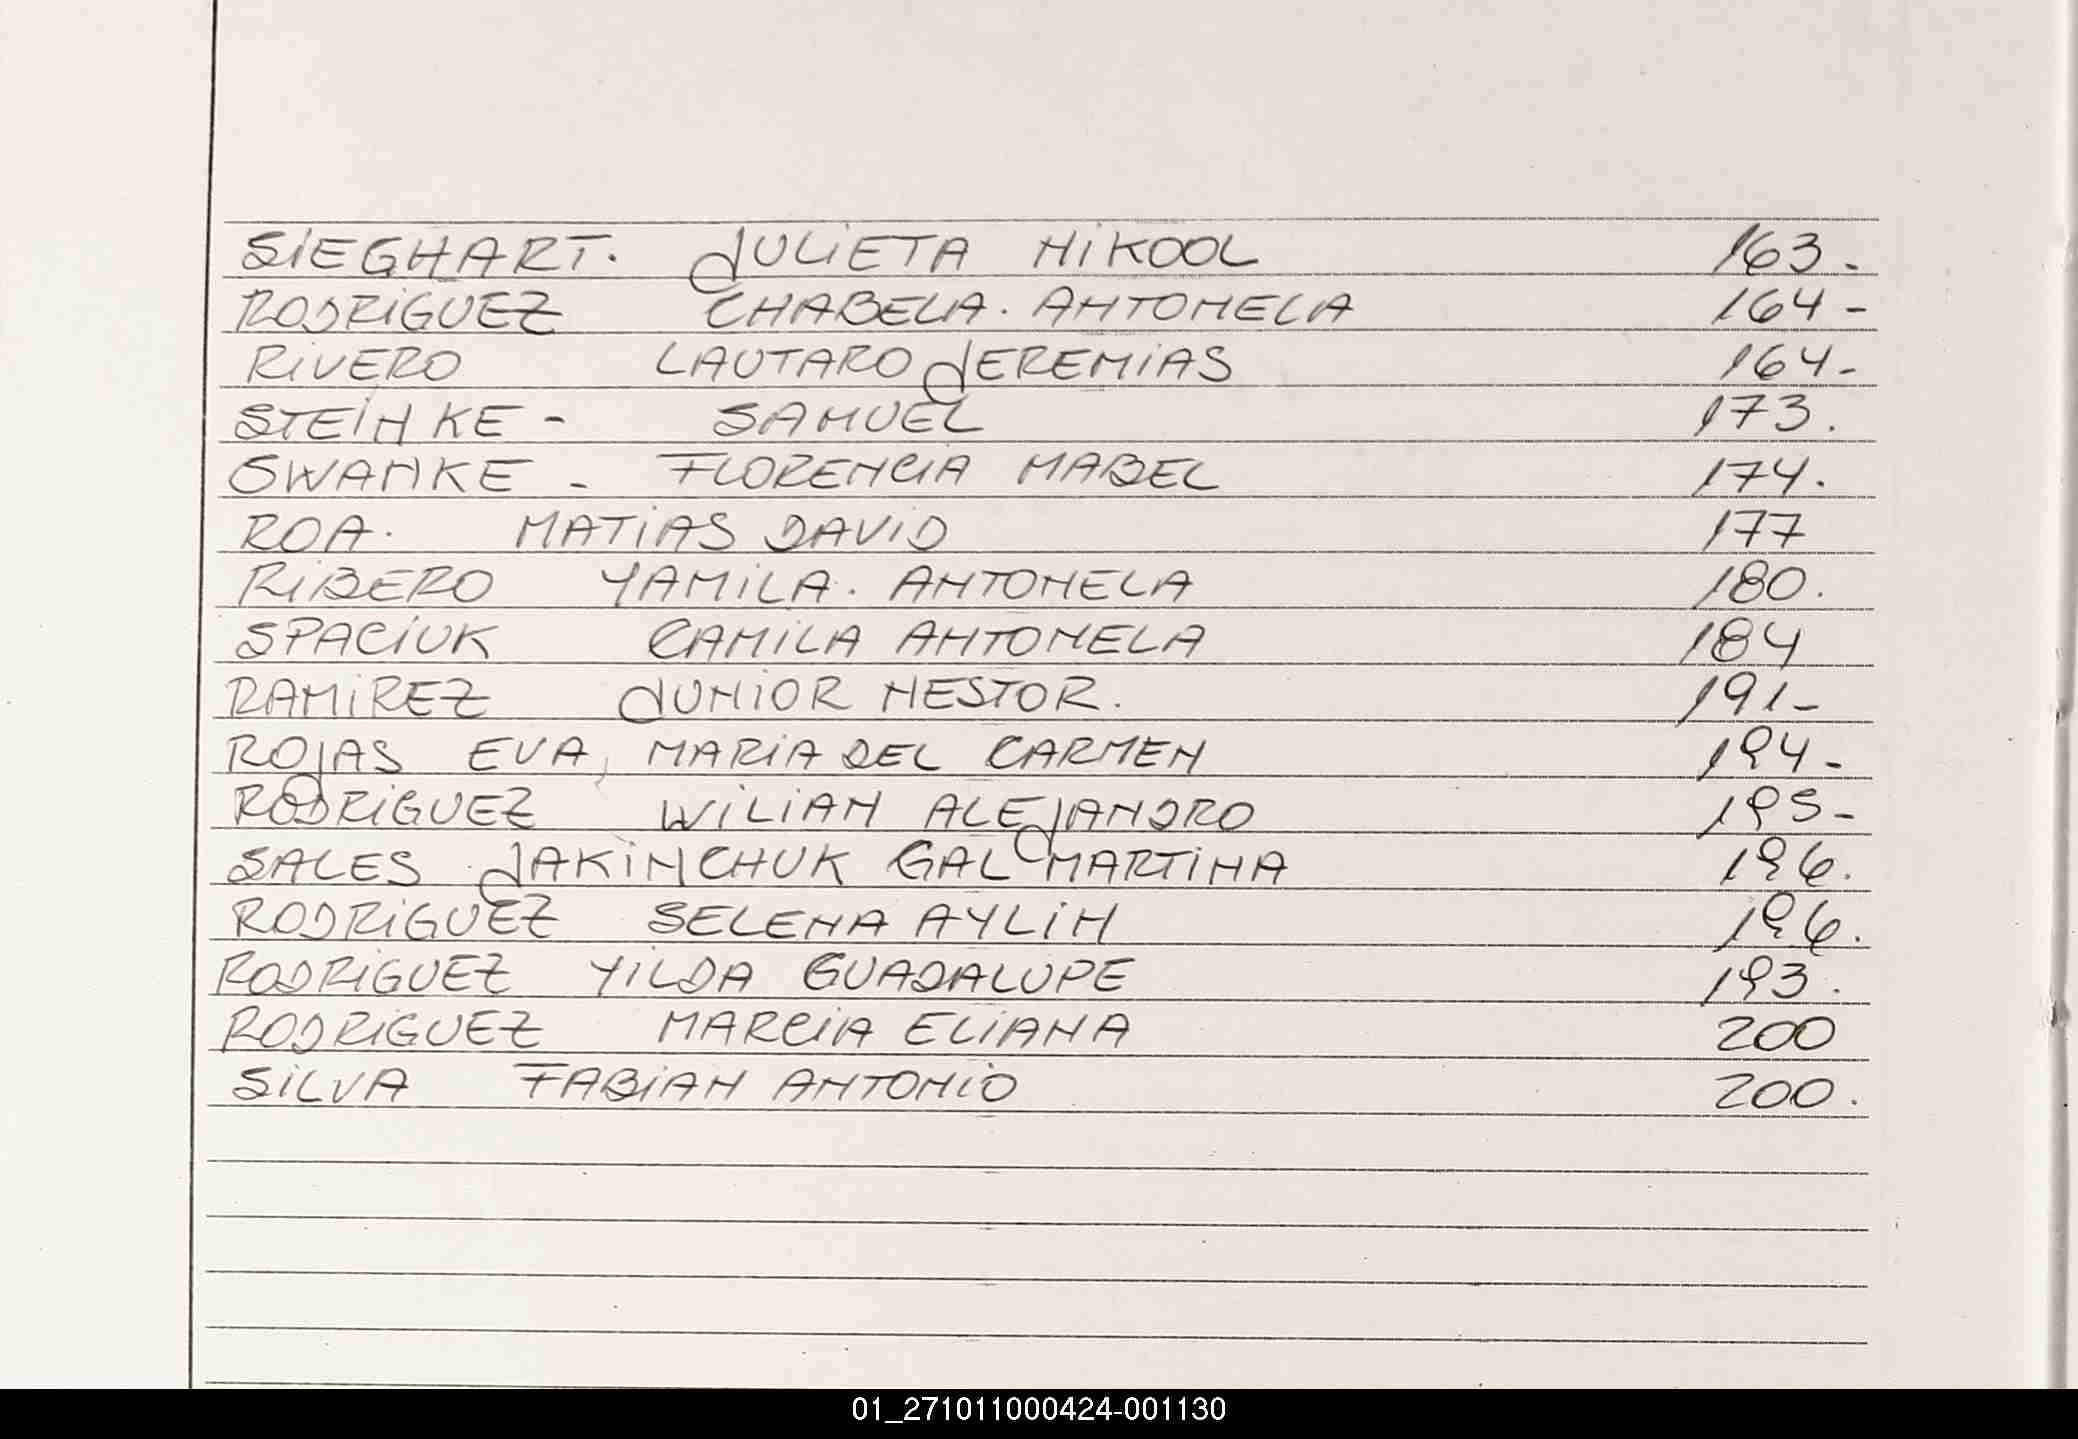 SIEGHART. JULIETA NIKOOL 163.
RODRIGUEZ CHABELA. ANTONELA 164-
RIVERO LAUTARO JEREMIAS 164-
STEINKE - SAMUEL 173.
GWANKE - FLORENCIA MABEL 174.
ROA. MATIAS DAVID 177
RIBERO YAMILA. ANTONELA 180.
SPACIUK CAMILA ANTONELA 184
RAMIREZ JUNIOR NESTOR. 191-
ROJAS EVA, MARIA DEL CARMEN 194-
RODRIGUEZ WILIAN ALEJANDRO 195-
SALES JAKINCHUK GAL MARTINA 196.
RODRIGUEZ SELENA AYLIN 196.
RODRIGUEZ YILDA GUADALUPE 193.
RODRIGUEZ MARCIA ELIANA 200
SILVA FABIAN ANTONIO 200.
01_271011000424-001130